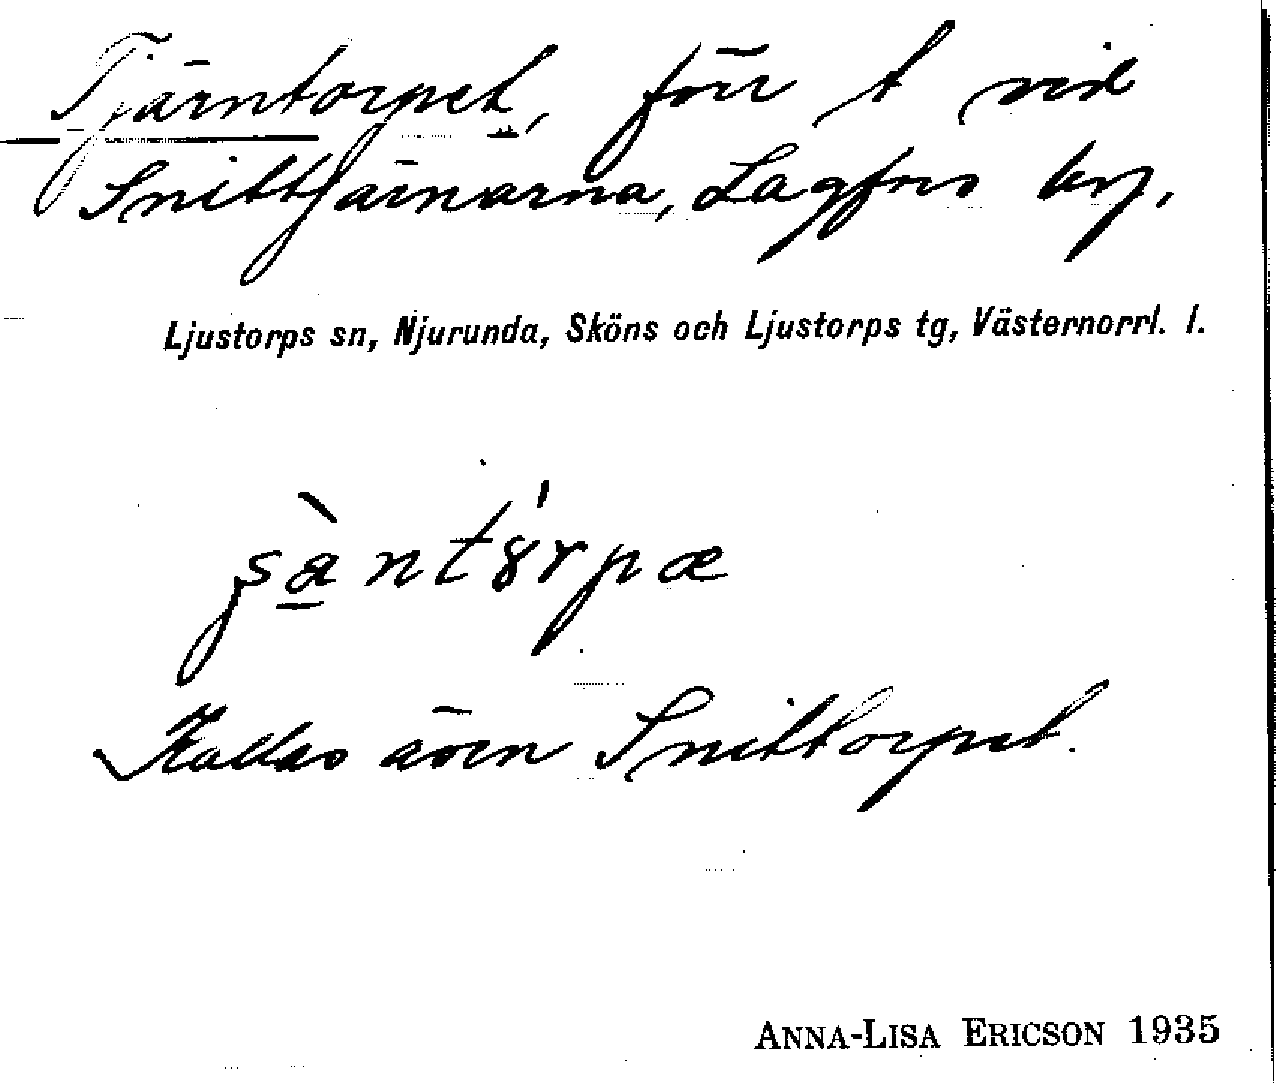 Tjärntorpet, förr t vid
Snittjärnarna, Lagfors by,
Ljustorps sn, Njurunda, Sköns och Ljustorps tg, Västernorrl. l.
Kallas även Snittorpet.
ANNA-LISA ERICSON 1935